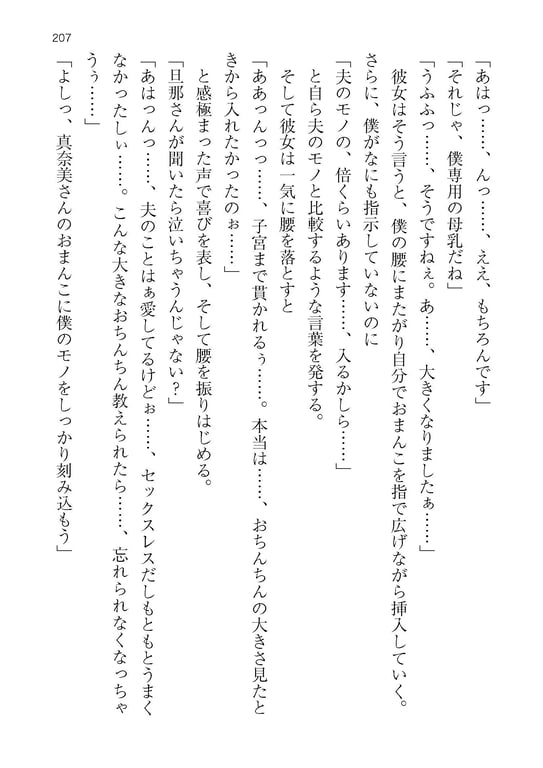 207
「あはっ……、んっ……、ええ、もちろんです」
「それじゃ、僕専用の母乳だね」
「うふふっ……、そうですねぇ。あ……、大きくなりましたぁ……」
彼女はそう言うと、僕の腰にまたがり自分でおまんこを指で広げながら挿入していく。
さらに、僕がなにも指示していないのに
「夫のモノの、倍くらいあります……、入るかしら……」
と自ら夫のモノと比較するような言葉を発する。
そして彼女は一気に腰を落とすと
「ああっんっっ……、子宮まで貫かれるぅ……。本当は……、おちんちんの大きさ見たと
きから入れたかったのぉ……」
と感極まった声で喜びを表し、そして腰を振りはじめる。
「旦那さんが聞いたら泣いちゃうんじゃない?」
「あはっんっ……、夫のことはぁ愛してるけどぉ……、セックスレスだしもともとうまく
なかったしぃ……。こんな大きなおちんちん教えられたら……、忘れられなくなっちゃ
うぅ……」
「よしっ、真奈美さんのおまんこに僕のモノをしっかり刻み込もう」